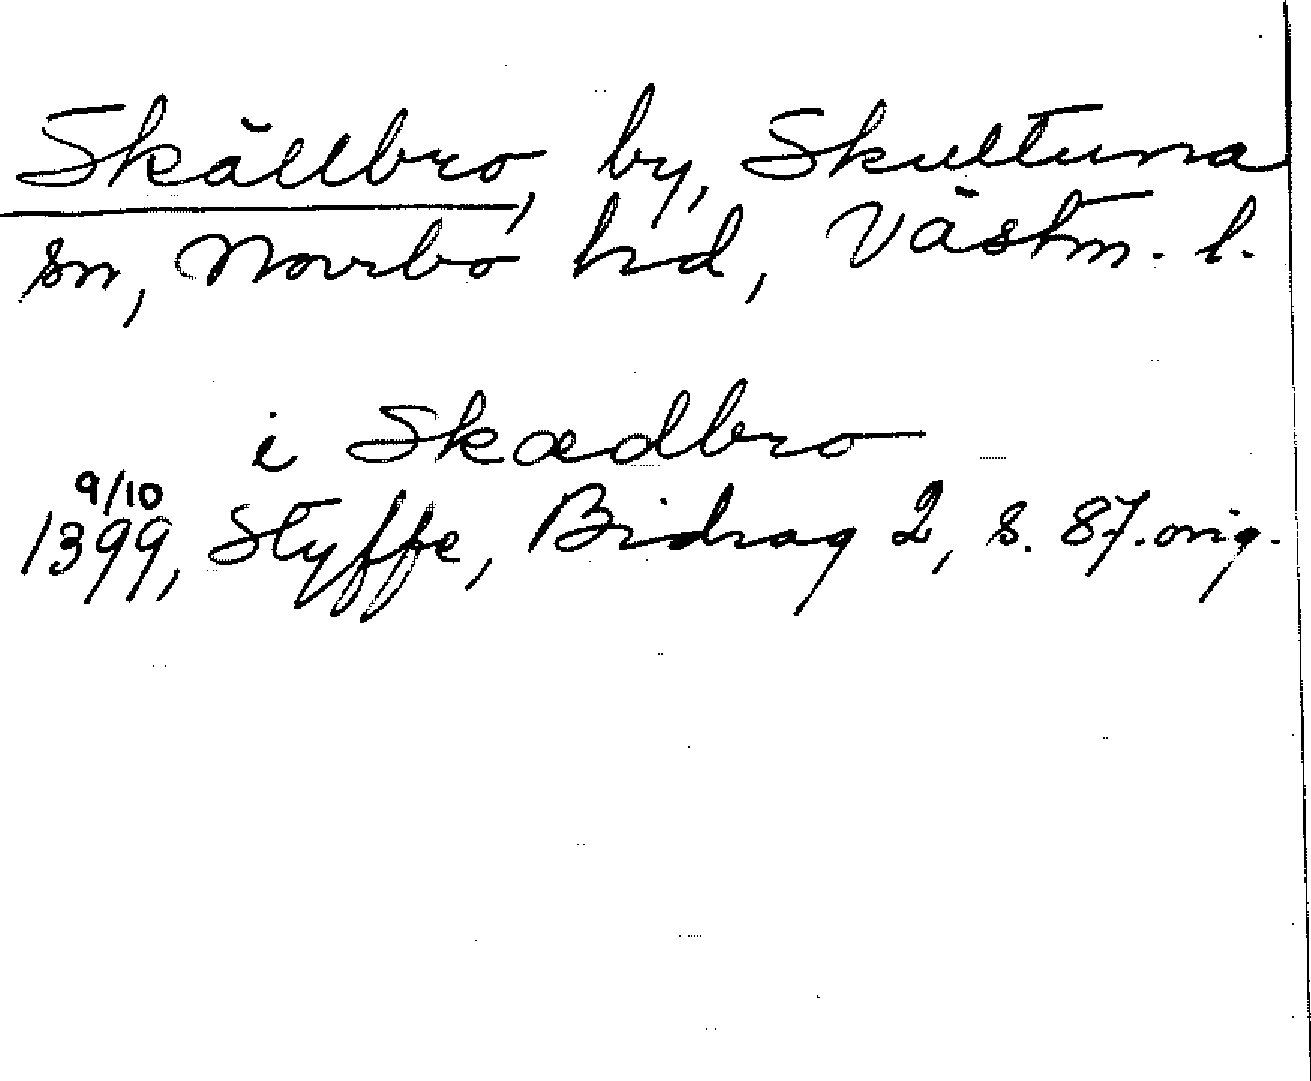 Skällbro, by, Skultuna
sn, Norrbo hd, Västm. l.
i Skædbro
9/10
1399, Styffe, Bidrag 2, s. 87. orig.